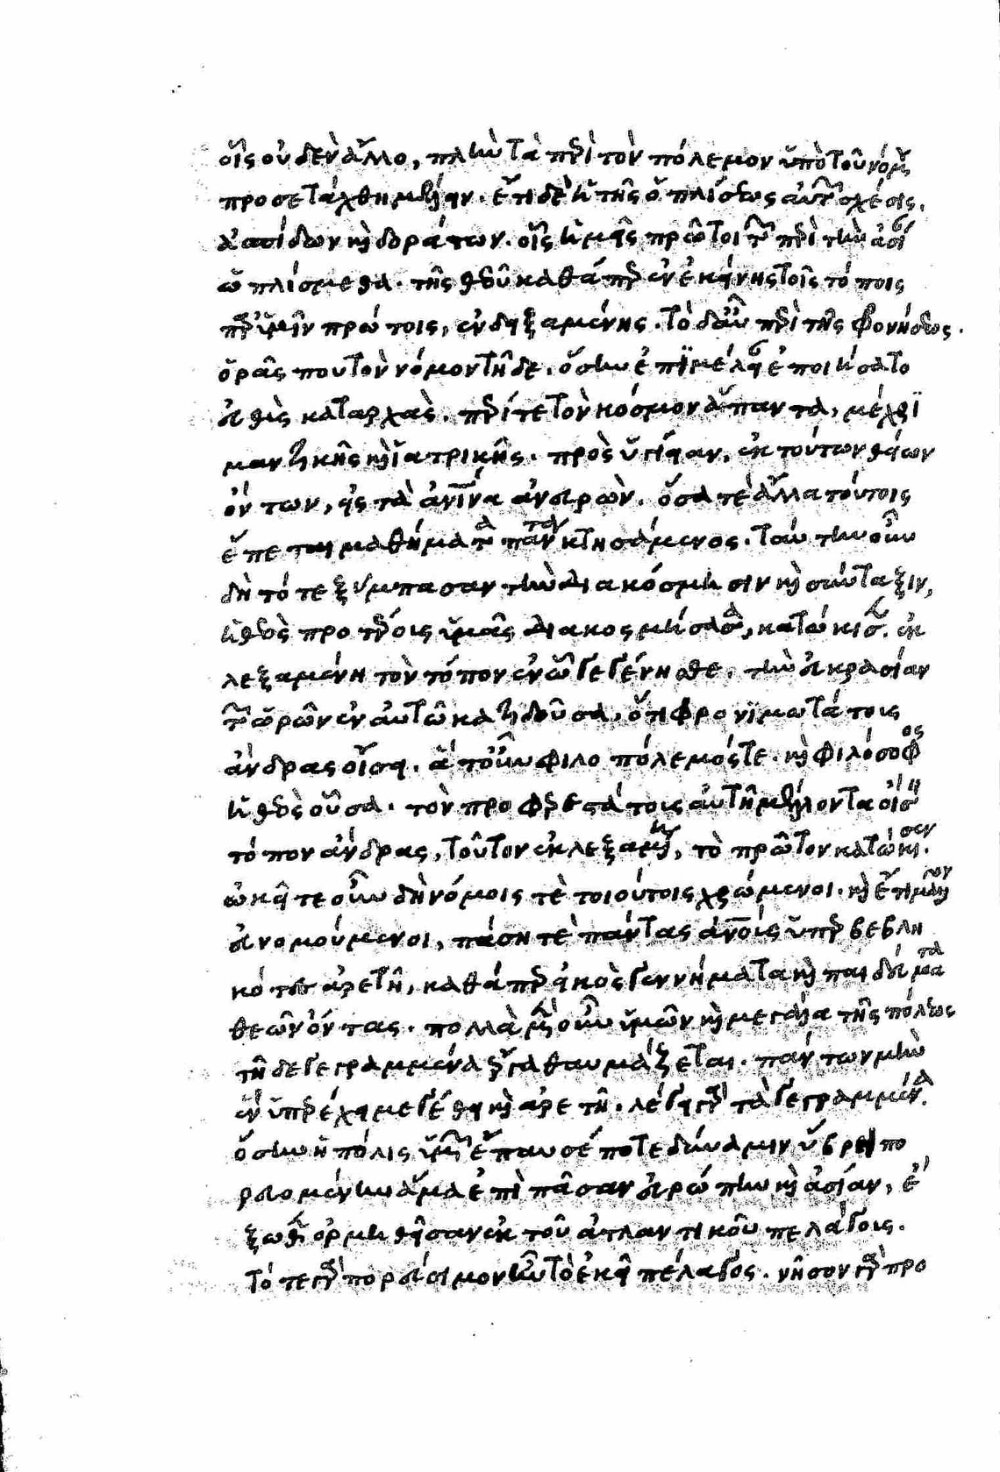 οἷς οὐδὲν ἄλλο, πλὴν τὰ περὶ τὸν πόλεμον ὑπὸ τοῦ νόμου
προσετάχθη μέλειν. ἔτι δὲ ἡ τῆς ὁπλίσεως αὐτῶν σχέσις,
ἀσπίδων καὶ δοράτων. οἷς ἡμεῖς πρῶτοι τῶν περὶ τὴν ἀσίαν
ὡπλίσμεθα. τῆς θεοῦ καθάπερ ἐν ἐκείνοις τοῖς τόποις
παρ' ὑμῖν πρώτοις, ἐνδειξαμένης. τὸ δ' αὖ περὶ τῆς φρονήσεως.
ὁρᾷς που τὸν νόμον τῇδε. ὅσην ἐπιμέλειαν ἐποιήσατο
εὐθὺς καταρχὰς. περί τε τὸν κόσμον ἅπαντα, μέχρι
μαντικῆς καὶ ἰατρικῆς. πρὸς ὑγίειαν, ἐκ τούτων θείων
ὄντων, εἰς τὰ ἀνθρώπινα ἀνευρὼν. ὅσα τε ἄλλα τούτοις
ἕπεται μαθήματα πάντα κτησάμενος. ταύτην οὖν
δὴ τότε ξύμπασαν τὴν διακόσμησιν καὶ σύνταξιν,
ἡ θεὸς προτέροις ὑμᾶς διακοσμήσασα, κατώκισεν. ἐκ
λεξαμένη τὸν τόπον ἐν ᾧ γεγένησθε. τὴν εὐκρασίαν
τῶν ὡρῶν ἐν αὐτῷ κατιδοῦσα. ὅτι φρονιμωτάτους
ἄνδρας οἴσει. ἅτ' οὖν φιλοπόλεμός τε. καὶ φιλόσοφος
ἡ θεὸς οὖσα. τὸν προσφερεστάτους αὐτῇ μέλλοντα οἴσειν
τόπον ἄνδρας, τοῦτον ἐκλεξαμένη, τὸ πρῶτον κατώκισεν.
ᾠκεῖτε οὖν δὴ νόμοις τε τοιούτοις χρώμενοι. καὶ ἔτι μᾶλλον
εὐνομούμενοι, πάσῃ τε πάντας ἀνθρώπους ὑπερβεβλη
κότες ἀρετῇ, καθάπερ εἰκὸς γεννήματα καὶ παιδεύματα
θεῶν ὄντας. πολλὰ μὲν οὖν ὑμῶν καὶ μεγάλα τῆς πόλεως
τῇδε γεγραμμένα ἔργα θαυμάζεται. πάντων μὴν
ἓν ὑπερέχει μεγέθει καὶ ἀρετῇ. λέγει γὰρ τὰ γεγραμμένα.
ὅσην ἡ πόλις ὑμῶν ἔπαυσέ ποτε δύναμιν ὕβρει πο
ρευομένην ἅμα ἐπὶ πᾶσαν εὐρώπην καὶ ἀσίαν, ἔ
ξωθεν ὁρμηθεῖσαν ἐκ τοῦ ἀτλαντικοῦ πελάγους.
τότε γὰρ πορεύσιμον ἦν τὸ ἐκεῖ πέλαγος. νῆσον γὰρ προ